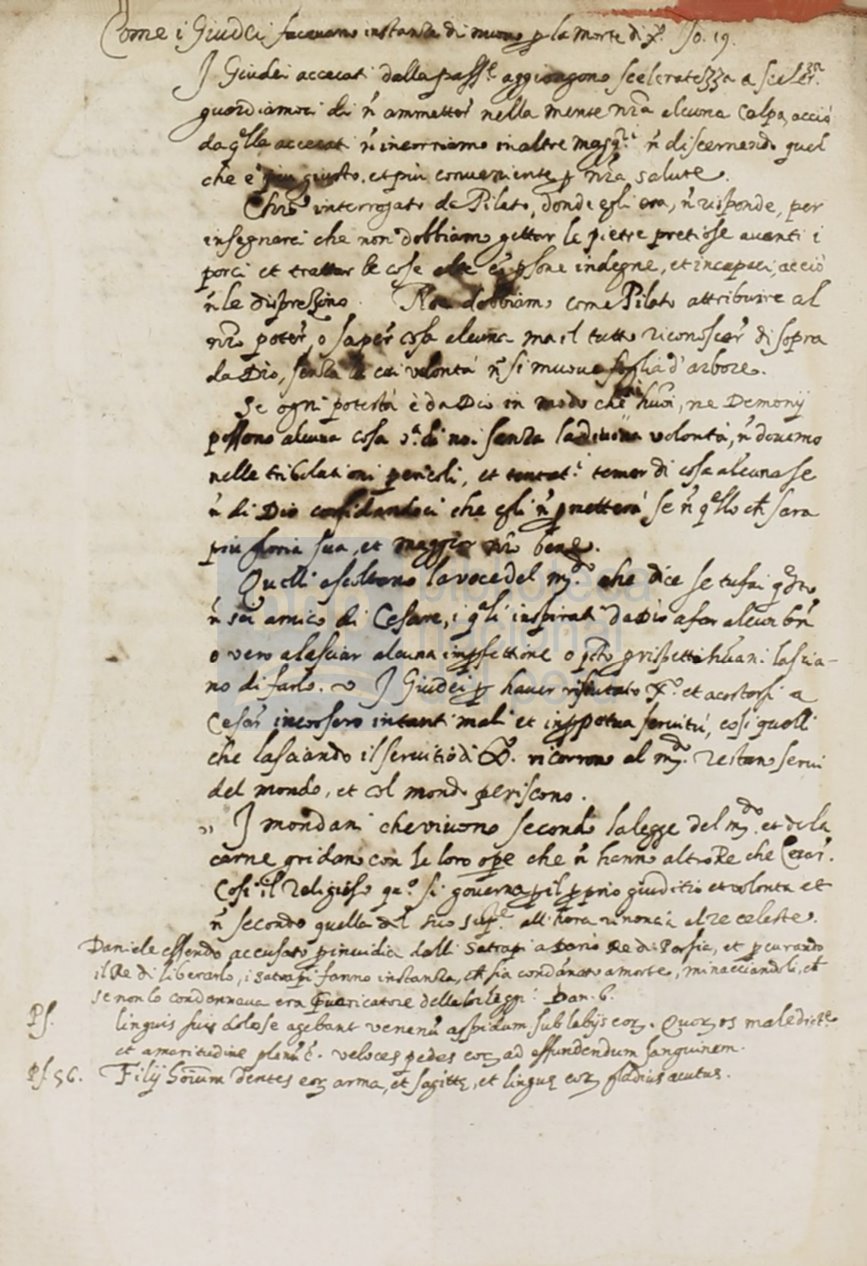 Come i Giudei facevano instanza di nuovo p la Morte di Xº. Jo. 19.
I Giudei accecati dalla pass.e aggiongono sceleratezza a sceler.za
guardiamoci di ñ ammetter nella mente nr̃a alcuna colpa, acciò
da q̃lla accecati ñ incorriamo in altre magg.ri ñ discernendo quel
che è più giusto, et più conveniente p nr̃a salute.
Chr̃o interrogato da Pilato, donde egli era, ñ risponde, per
insegnarci che non dobbiamo gettar le pietre pretiose avanti i
porci et trattar le cose alte cũ psone indegne, et incapaci, acciò
ñ le disprezzino. Non dobbiamo come Pilato attribuire al
nr̃o poter, o saper cosa alcuna ma il tutto riconoscer di sopra
da Dio, senza la cui volontà ñ si muove foglia d'arbore.
Se ogni potestà è da Dio in modo che hũoi, ne Demonij
possono alcuna cosa di noi senza la divina volontà, ñ dovemo
nelle tribulationi pericoli, et tentat.i temer di cosa alcuna se
ñ di Dio confidandoci che egli ñ pmetterà se ñ q̃llo ch̃ sara
più gloria sua, et maggior nr̃o bene.
Quelli ascoltano la voce del m.do che dice se tu fai q̃sto
ñ sei amico di Cesare, i q̃li inspirati da Dio a far alcun bñ
o vero a lasciar alcuna impfettione o pctõ p rispetti hũani lascia-
no di farlo. I Giudei p haver rifiutato Xº. et acostarsi a
Cesar incorsero in tanti mali et in ppetua servitù, così quelli
che lasciando il servitio di Xº. ricorrono al m.do restano servi
del mondo, et col mondo periscono.
" I mondani che vivono secondo la legge del m.do et de la
carne gridano con le loro ope che ñ hanno altro Re che Cesar.
Così il religioso q.do si governa p il pprio giuditio et volontà et
ñ secondo quella del suo sup.re all'hora rinoncia al re celeste.
Daniele essendo accusato p invidia dalli Satrapi a Dario Re di Persia, et pcurando
il Re di liberarlo, i satrapi fanno instanza, ch̃ sia condãnato a morte, minacciandoli, ch̃
se non lo condennava era pvaricatore della lor leggi. Dan. 6.
Ps. linguis suis dolose agebant venenũ aspidum sub labijs eoꝝ. Quoꝝ os maledict.e
et amaritudine plenũ ẽ. veloces pedes eoꝝ ad effundendum sanguinem.
Ps. 56. Filij hoĩum dentes eoꝝ arma, et sagittę, et linguę eoꝝ gladius acutus.
biblioteca